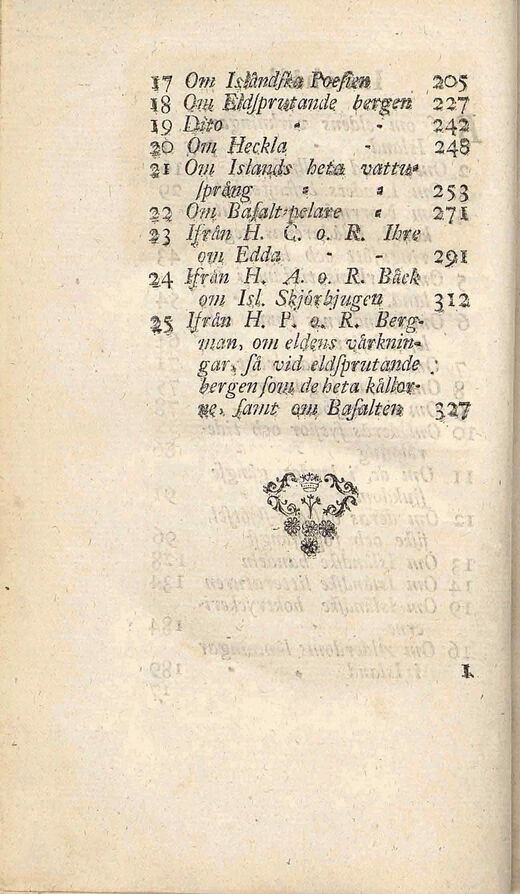 17 Om Islåndſka Poeſien 205
18 Om Eldſprutande bergen 227
19 Dito - - 242
20 Om Heckla - 248
21 Om Islands heta vattu-
ſprång - - 253
22 Om Baſalt-pelare - 271
23 Ifrån H. C. o. R. Ihre
om Edda - - 291
24 Ifrån H. A. o. R. Båck
om Isl. Skjörbjugen 312
25 Ifrån H. P. o. R. Berg-
man, om eldens vårknin-
gar, ſå vid eldſprutande
bergen ſom de heta kållor-
ne, ſamt om Baſalten 327
I.